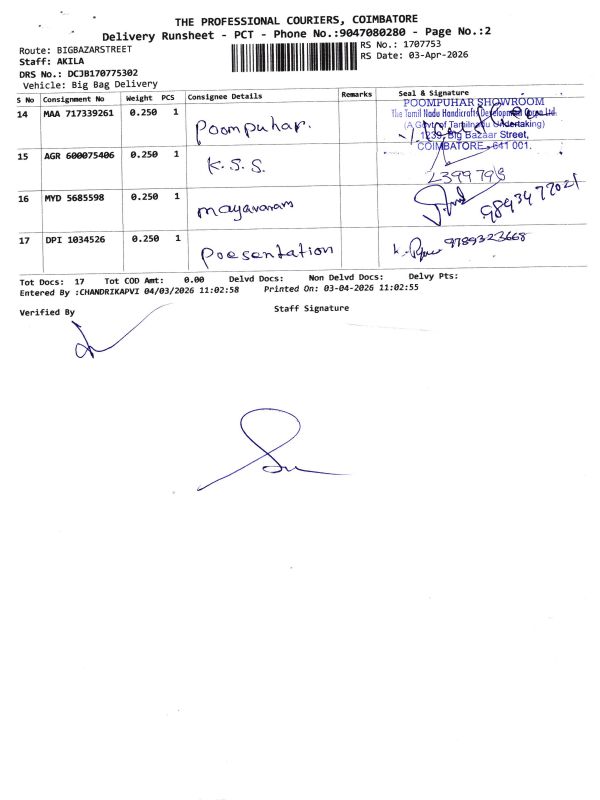 THE PROFESSIONAL COURIERS, COIMBATORE
Delivery Runsheet - PCT - Phone No.:9047080280 - Page No.:2
Route: BIGBAZARSTREET
Staff: AKILA
DRS No.: DCJB170775302
Vehicle: Big Bag Delivery
RS No.: 1707753
RS Date: 03-Apr-2026
S No Consignment No Weight PCS Consignee Details Remarks Seal & Signature
14 MAA 717339261 0.250 1 Poompuhar.
POOMPUHAR SHOWROOM
The Tamil Nadu Handicrafts Development Corpn Ltd.
(A Govt. of Tamilnadu Undertaking)
1239, Big Bazaar Street,
COIMBATORE - 641 001.
15 AGR 600075406 0.250 1 K.S.S.
2399798
16 MYD 5685598 0.250 1 mayavaram 9893477021
17 DPI 1034526 0.250 1 Poesentation 9789323668
Tot Docs: 17 Tot COD Amt: 0.00 Delvd Docs: Non Delvd Docs: Delvy Pts:
Entered By :CHANDRIKAPVI 04/03/2026 11:02:58 Printed On: 03-04-2026 11:02:55
Verified By Staff Signature